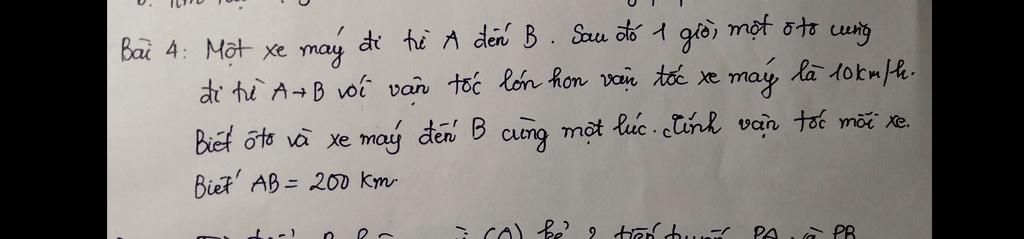 Bài 4: Một xe máy đi từ A đến B. Sau đó 1 giờ, một ôtô cũng
đi từ A→B với vận tốc lớn hơn vận tốc xe máy là 10km/h.
Biết ôtô và xe máy đến B cùng một lúc. Tính vận tốc mỗi xe.
Biết AB = 200 km.